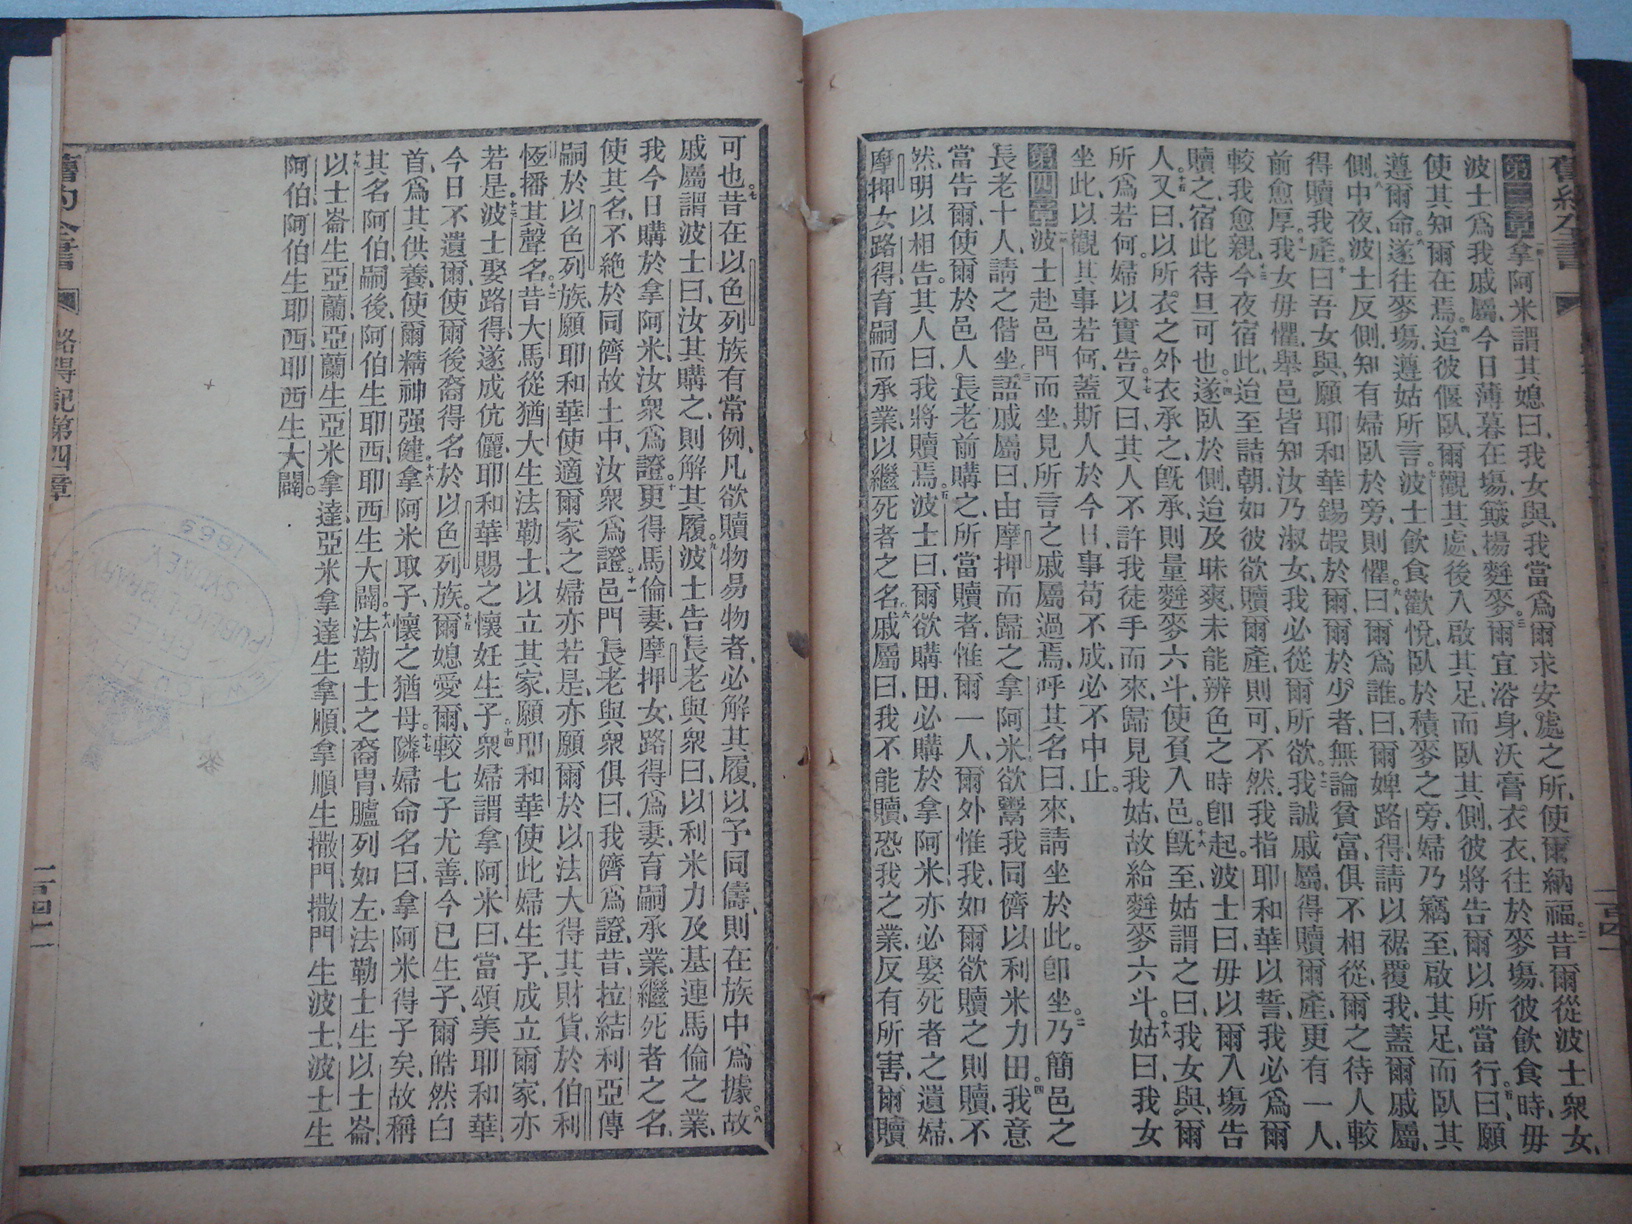 舊約全書
一百四一
第三章拿阿米謂其媳曰、我女與、我當爲爾求安處之所、使爾納福。昔爾從波士衆女、
波士爲我戚屬、今日薄暮在塲、簸揚麰麥。爾宜浴身、沃膏衣衣、往於麥塲、彼飲食時、毋
使其知爾在焉。迨彼偃臥、爾觀其處、後入啟其足、而臥其側、彼將告爾以所當行。曰、願
遵爾命。遂往麥塲、遵姑所言。波士飲食歡悅、臥於積麥之旁、婦乃竊至、啟其足而臥其
側。中夜、波士反側、知有婦臥於旁、則懼。曰、爾爲誰。曰、爾婢路得、請以裾覆我、蓋爾戚屬、
得贖我產。曰、吾女與、願耶和華錫嘏於爾、爾於少者、無論貧富、俱不相從、爾之待人、較
前愈厚。我女毋懼、舉邑皆知汝乃淑女、我必從爾所欲。我誠戚屬、得贖爾產、更有一人、
較我愈親。今夜宿此、迨至詰朝、如彼欲贖爾產、則可、不然、我指耶和華以誓、我必爲爾
贖之、宿此待旦可也。遂臥於側、迨及昧爽、未能辨色之時、卽起。波士曰、毋以爾入塲告
人。又曰、以所衣之外衣承之、旣承、則量麰麥六斗、使負入邑。旣至、姑謂之曰、我女與、爾
所爲若何。婦以實告。又曰、其人不許我徒手而來、歸見我姑、故給麰麥六斗。姑曰、我女
坐此、以觀其事若何、蓋斯人於今日、事苟不成、必不中止。
第四章波士赴邑門而坐、見所言之戚屬過焉、呼其名曰、來、請坐於此。卽坐。乃簡邑之
長老十人、請之偕坐。語戚屬曰、由摩押而歸之拿阿米、欲鬻我同儕以利米力田。我意
當告爾、使爾於邑人長老前購之、所當贖者、惟爾一人、爾外惟我、如爾欲贖之則贖、不
然、明以相告。其人曰、我將贖焉。波士曰、爾欲購田、必購於拿阿米、亦必娶死者之遺婦、
摩押女路得、育嗣而承業、以繼死者之名。戚屬曰、我不能贖、恐我之業、反有所害、爾贖
可也。昔在以色列族有常例、凡欲贖物易物者、必解其履、以予同儔、則在族中、爲據。故
戚屬謂波士曰、汝其購之、則解其履。波士告長老與衆曰、以利米力及基連馬倫之業、
我今日購於拿阿米、汝衆爲證。更得馬倫妻、摩押女路得、爲妻、育嗣承業、繼死者之名、
使其名、不絕於同儕故土中、汝衆爲證。邑門長老與衆俱曰、我儕爲證、昔拉結利亞傳
嗣於以色列族、願耶和華使適爾家之婦亦若是、亦願爾於以法大得其財貨、於伯利
恆播其聲名、昔大馬從猶大生法勒士、以立其家、願耶和華使此婦生子、成立爾家、亦
若是。波士娶路得、遂成伉儷、耶和華賜之懷妊生子。衆婦謂拿阿米曰、當頌美耶和華、
今日不遺爾、使爾後裔得名於以色列族。爾媳愛爾、較七子尤善、今已生子、爾皓然白
首、爲其供養、使爾精神强健。拿阿米取子、懷之猶母。隣婦命名曰、拿阿米得子矣、故稱
其名阿伯嗣後、阿伯生耶西、耶西生大闢。法勒士之裔胄、臚列如左、法勒士生以士崙、
以士崙生亞蘭、亞蘭生亞米拿達、亞米拿達生拿順、拿順生撒門、撒門生波士、波士生
阿伯、阿伯生耶西、耶西生大闢。
舊約全書
路得記第四章
一百四二
NEW SOUTH
FREE
PUBLIC LIBRARY
SYDNEY
1869